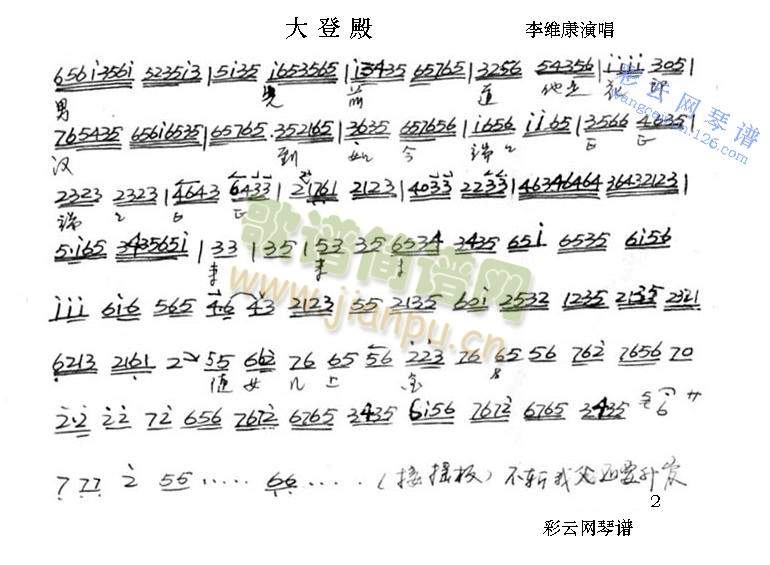 大登殿 李维康演唱
656i356i 5235i3 | 5i35 i653565 | 3435 65765 | 3256 54356 | iiii 305 |
男 道 他
765435 656i6535 | 65765 352165 | 3635 657656 | i656 ii65 | 3566 4635 |
汉 到 如 今 端 正
2323 2323 | 4643 6433 | 21761 2123 | 4033 2233 | 46346464 36432123 |
端 正
5·i65 343565i | 33 | 35 | 53 35 6534 3435 65i 6535 6i56
来 来 来
iii 6i6 565 46 43 2123 55 2135 60i 2532 1235 2135 2321
6213 2161 2 55 662 76 65 56 223 76 65 56 762 7656 70
随 女 儿 上 金
2·2 22 72 656 7672 6765 3435 6i56 7672 6765 3435 6 サ
7 77 2 55 ...... 66 ..... (接摇板) 不斩我父
2
彩云网琴谱
歌谱简谱网
www.jianpu.cn
彩云网琴谱